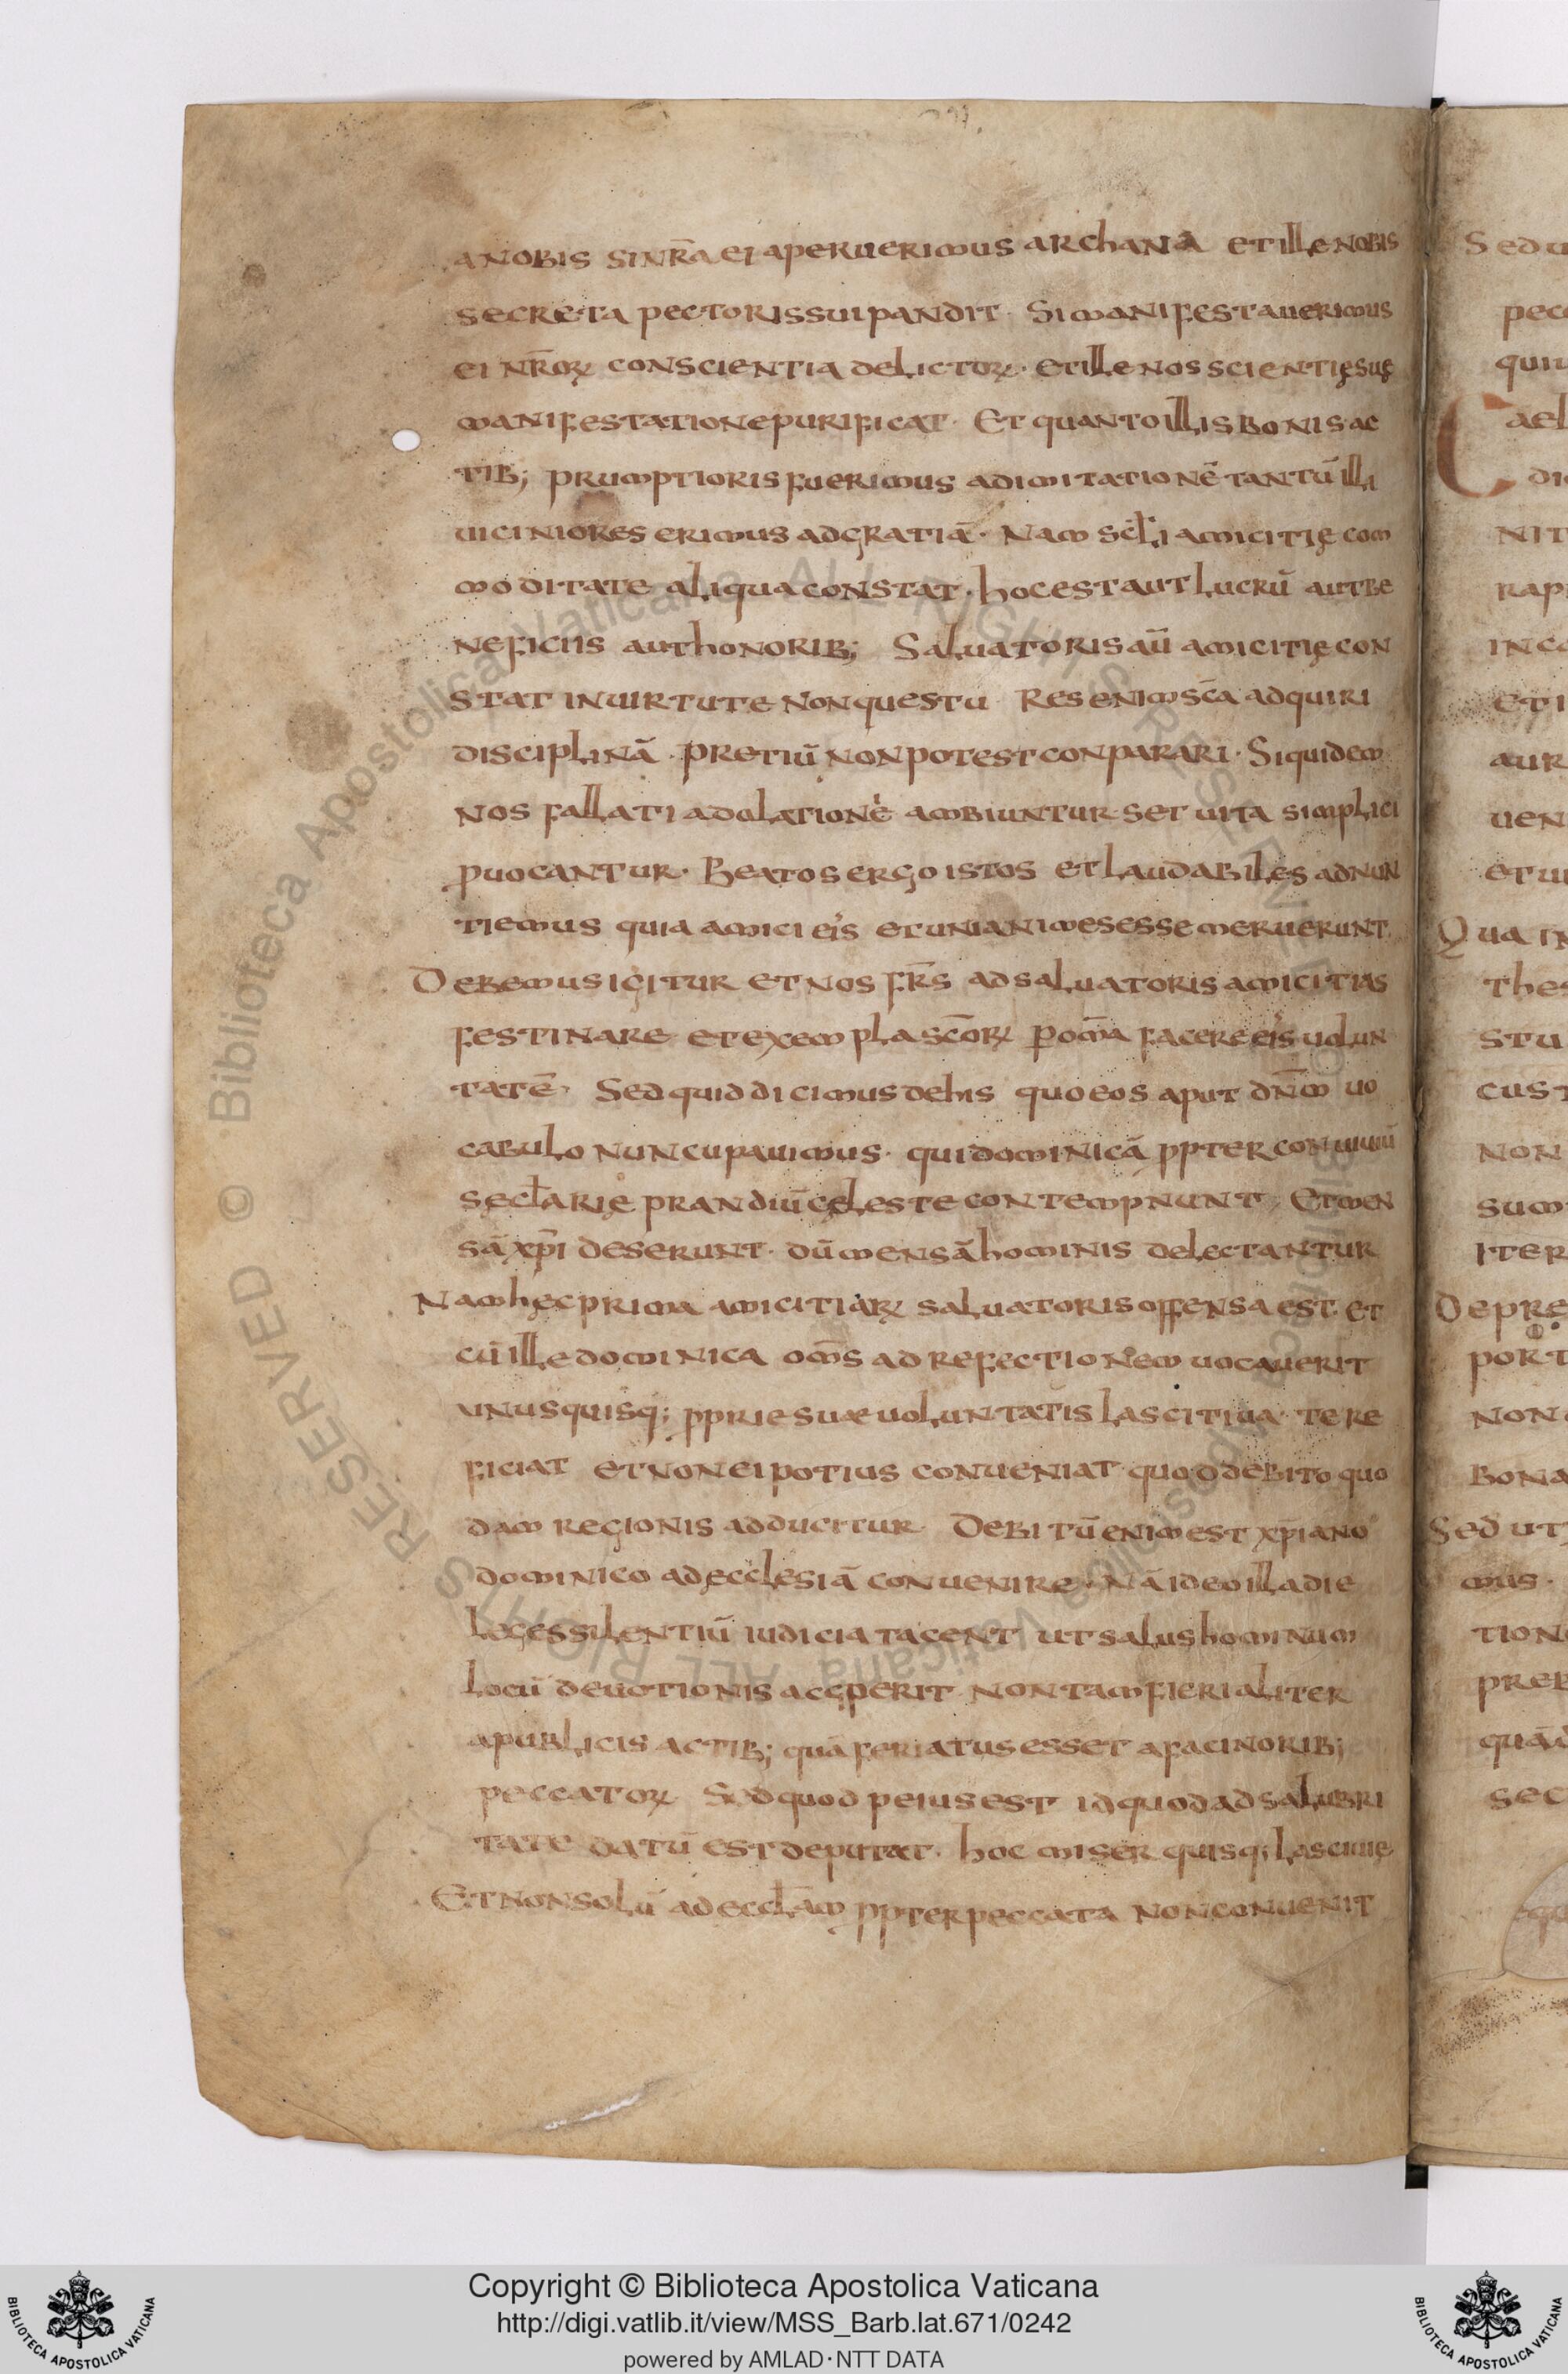 a nobis si nr̄a ei aperuerimus archana et ille nobis
secreta pectoris sui pandit · Si manifestauerimus
ei nr̄oꝝ conscientia delictoꝝ · et ille nos scientię suę
manifestatione purificat · Et quanto illis bonis ac
tib; prumptioris fuerimus ad imitationē tantū illi
uiciniores erimus ad gratiā · Nam scl̄i amicitię com
moditate aliqua constat · hoc est aut lucrū aut be
neficiis aut honorib; Saluatoris aū amicitię con
stat in uirtute non questu Res enim sc̄a adquiri
disciplinā · pretiū non potest conparari · Siquidem
nos fallati adolationē ambiuntur set uita simplici
ꝓuocantur · Beatos ergo istos et laudabiles adnun
tiemus quia amici eis et unianimes esse meruerunt
Debemus igitur et nos fr̄s ad saluatoris amicitias
festinare et exempla sc̄oꝝ ꝑ om̄a facere eis uolun
tatē · Sed quid dicimus de his quo eos aput dn̄m uo
cabulo nuncupauimus · qui dominicā ppter conuiuiū
secl̄arię prandiū celeste contempnunt · Et men
sā xp̄i deserunt · dū mensā hominis delectantur
Nam hęc prima amicitiaꝝ saluatoris offensa est · et
cū ille dominica om̄s ad refectionem uocauerit
unusquisq; pprie suae uoluntatis lascitiua te re
ficiat et non ei potius conueniat quod debito quo
dam regionis adducitur · Debitū enim est xp̄iano
dominico ad ecclesiā conuenire · Nā ideo illa die
leges silentiū iudicia tacent ut salus hominum
locū deuotionis acceperit non tam fieri aliter
a publicis actib; quā feriatus esset a facinorib;
peccatoꝝ Sed quod peius est id quod ad salubri
tate datū est deputat · hoc miser quisq; lasciuię
Et non solū ad eccl̄am ppter peccata non conuenit
Copyright © Biblioteca Apostolica Vaticana
http://digi.vatlib.it/view/MSS_Barb.lat.671/0242
powered by AMLAD·NTT DATA